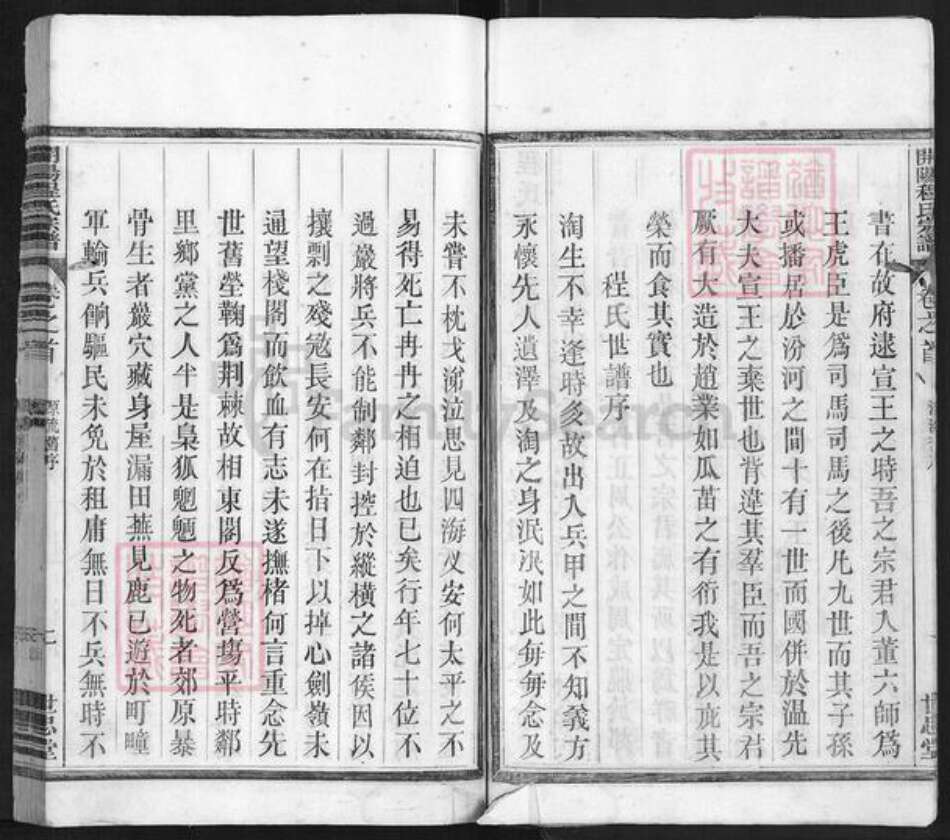 書在故府逮宣王之時吾之宗君入董六師為
王虎臣是為司馬司馬之後凡九世而其子孫
或播居於汾河之間十有一世而國併於温先
大夫宣王之棄世也背違其羣臣而吾之宗君
厥有大造於趙業如瓜苗之有衍我是以庇其
榮而食其實也
程氏世譜序
淘生不幸逢時亥故出入兵甲之間不知義方
永懷先人遺澤及淘之身泯泯如此每每念及
未嘗不枕戈涕泣思見四海乂安何太平之不
易得死亡冉冉之相迫也已矣行年七十位不
過巖將兵不能制鄰封控於縱橫之諸侯因以
攘剽之殘冦長安何在指日下以掉心劍嶺未
通望棧閣而飲血有志未遂撫楮何言重念先
世舊塋鞠為荆棘故相東閣反為營塲平時鄰
里鄉黨之人半是梟狐魍魎之物死者郊原暴
骨生者巖穴藏身屋漏田蕪見鹿已遊於町疃
軍輸兵餉驅民未免於租庸無日不兵無時不
開陽程氏宗譜
卷之首
源流舊序
七
世忠堂
開陽程氏宗譜
卷之首
世忠堂
FamilySearch